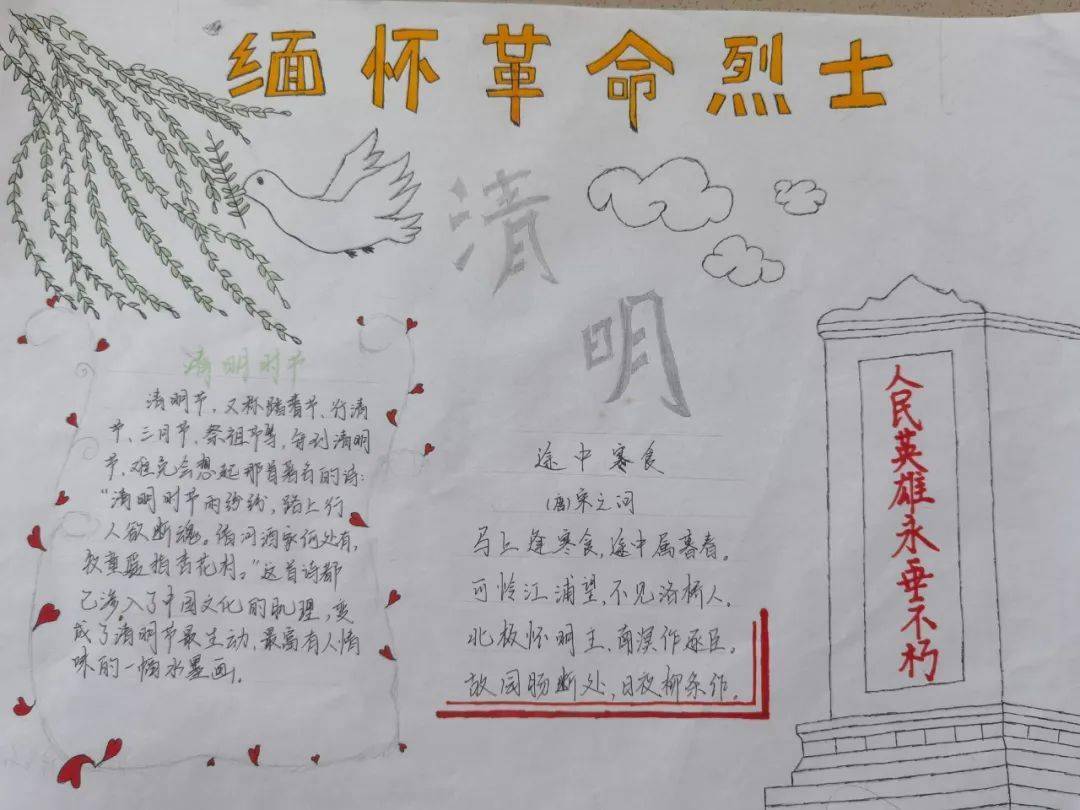 缅怀革命烈士
清
明
清明时节
清明节，又称踏青节、行清
节、三月节、祭祖节等，每到清明
节，难免会想起那首著名的诗：
“清明时节雨纷纷，路上行
人欲断魂。借问酒家何处有，
牧童遥指杏花村。”这首诗都
已渗入了中国文化的肌理，变
成了清明节最生动、最富有人情
味的一幅水墨画。
途中寒食
（唐）宋之问
马上逢寒食，途中属暮春。
可怜江浦望，不见洛桥人。
北极怀明主，南溟作逐臣。
故园肠断处，日夜柳条作。
人民英雄永垂不朽